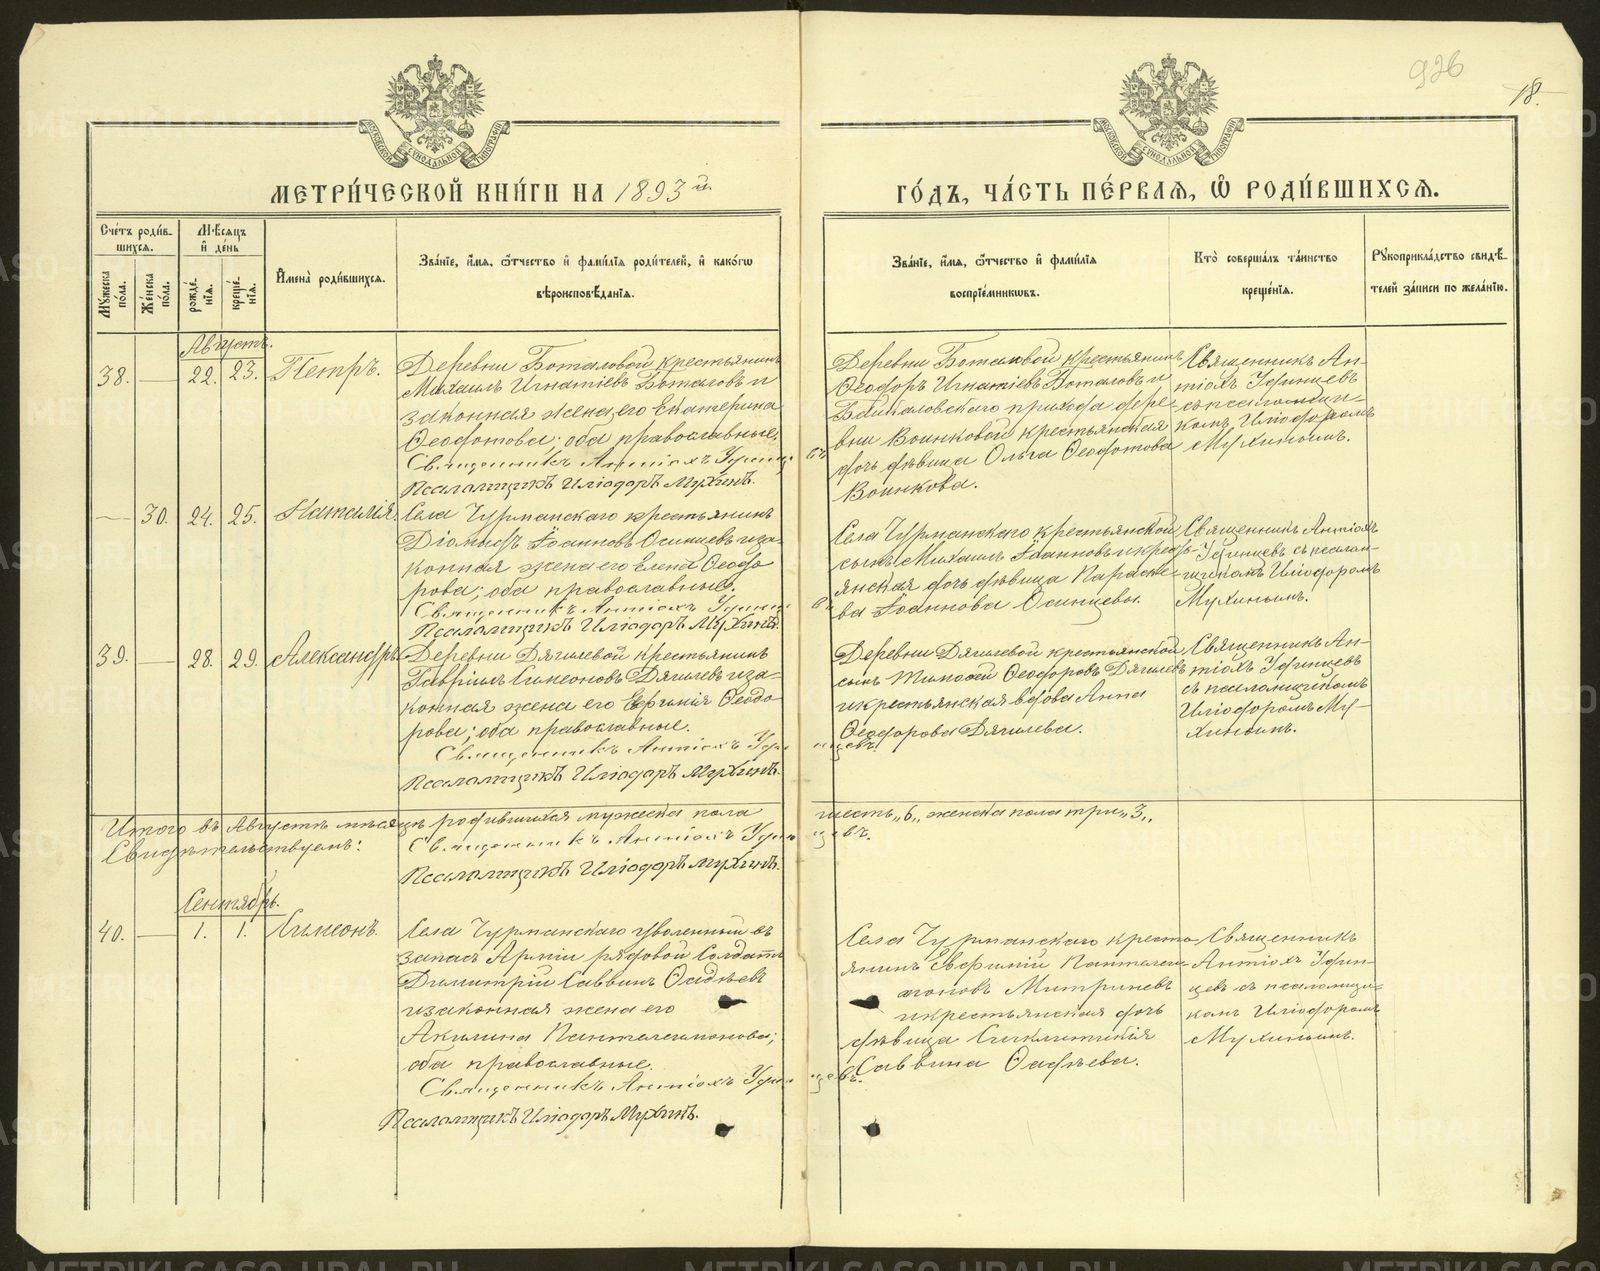 926
18.
МЕТРИ́ЧЕСКОЙ КНИ́ГИ НА 1893 й.
ГО́ДЪ, ЧА́СТЬ ПЕ́РВАЯ, Ѽ РОДИ́ВШИХСЯ.
Сче́тъ роди́в-
шихся.
Мꙋ́жеска по́ла.
Же́нска по́ла.
Мѣ́сяцъ и҆ де́нь
рожде́нїя.
креще́нїя.
И҆мена̀ роди́вшихся.
Зва́нїе, и҆́мя, ѻ҆́тчество и҆ фами́лїя роди́телей, и҆ како́гѡ
вѣроисповѣ́данїя.
Зва́нїе, и҆́мя, ѻ҆́тчество и҆ фами́лїя
воспрїе́мникѡвъ.
Кто̀ соверша́лъ та́инство
креще́нїя.
Рꙋкоприкла́дство свидѣ́-
телей за́писи по жела́нїю.
Августъ.
38. — 22. 23. Петръ.
Деревни Боталовой крестьянинъ
Михаилъ Игнатіевъ Боталовъ и
законная жена его Екатерина
Ѳеодотова; оба православные.
Священникъ Антіохъ Уфинцевъ
Псаломщикъ Иліодоръ Мухинъ.
Деревни Боталовой крестьянинъ
Ѳеодоръ Игнатіевъ Боталовъ и
Байкаловскаго прихода дере-
вни Воинковой крестьянская
дочь дѣвица Ольга Ѳеодотова
Воинкова.
Священникъ Ан-
тіохъ Уфинцевъ
съ псаломщи-
комъ Иліодоромъ
Мухинымъ.
— 30. 24. 25. Наталія.
Села Чурманскаго крестьянинъ
Діомидъ Іоанновъ Осинцевъ и за-
конная жена его Елена Ѳеодо-
рова; оба православные.
Священникъ Антіохъ Уфинцевъ
Псаломщикъ Иліодоръ Мухинъ.
Села Чурманскаго крестьянской
сынъ Михаилъ Іоанновъ и кресть-
янская дочь дѣвица Параске-
ва Іоаннова Осинцевы.
Священникъ Антіохъ
Уфинцевъ съ псалом-
щикомъ Иліодоромъ
Мухинымъ.
39. — 28. 29. Александръ
Деревни Дягилевой крестьянинъ
Гавріилъ Симеоновъ Дягилевъ и за-
конная жена его Евгенія Ѳеодо-
рова; оба православные.
Священникъ Антіохъ Уфинцевъ.
Псаломщикъ Иліодоръ Мухинъ.
Деревни Дягилевой крестьянской
сынъ Тимоѳей Ѳеодоровъ Дягилевъ
и крестьянская вдова Анна
Ѳеодорова Дягилева.
Священникъ Ан-
тіохъ Уфинцевъ
съ псаломщикомъ
Иліодоромъ Му-
хинымъ.
Итого въ Августѣ мѣсяцѣ родившихся мужеска пола шесть „6„ женска пола три „3„
Свидѣтельствуемъ: Священникъ Антіохъ Уфинцевъ.
Псаломщикъ Иліодоръ Мухинъ.
Сентябрь.
40. — 1. 1. Симеонъ.
Села Чурманскаго уволенный въ
запасъ Арміи рядовой Солдатъ
Димитрій Саввинъ Ѳадѣевъ
и законная жена его
Акилина Панталеимонова;
оба православные.
Священникъ Антіохъ Уфинцевъ.
Псаломщикъ Иліодоръ Мухинъ.
Села Чурманскаго кресть-
янинъ Евфимій Панталеи-
моновъ Митриневъ
и крестьянская дочь
дѣвица Синклитикія
Саввина Ѳадѣева.
Священникъ
Антіохъ Уфин-
цевъ съ псаломщи-
комъ Иліодоромъ
Мухинымъ.